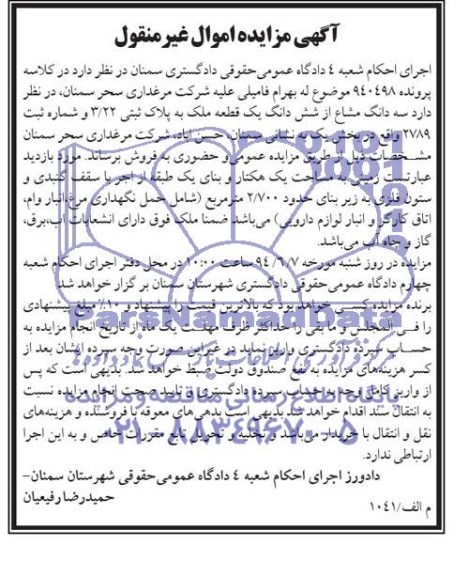 آگهی مزایده اموال غیر منقول
اجرای احکام شعبه ۴ دادگاه عمومی‌حقوقی دادگستری سمنان در نظر دارد در کلاسه
پرونده ۹۴۰۴۹۸ موضوع له بهرام فامیلی علیه شرکت مرغداری سحر سمنان، در نظر
دارد سه دانگ مشاع از شش دانگ یک قطعه ملک به پلاک ثبتی ۳/۲۲ و شماره ثبت
۲۷۸۹ واقع در بخش یک به نشانی سمنان، حسن آباد، شرکت مرغداری سحر سمنان
مشخصات ذیل از طریق مزایده عمومی و حضوری به فروش برساند. مورد بازدید
عبارتست زمینی به مساحت یک هکتار و بنای یک طبقه از اجر با سقف گنبدی و
ستون فلزی به زیر بنای حدود ۲/۷۰۰ مترمربع (شامل حمل نگهداری مرغ، انبار وام،
اتاق کارگر و انبار لوازم دارویی) می‌باشد ضمنا ملک فوق دارای انشعابات آب،برق،
گاز و چاه آب می‌باشد.
مزایده در روز شنبه مورخه ۹۴/۶/۷ ساعت ۱۰:۰۰ در محل دفتر اجرای احکام شعبه
چهارم دادگاه عمومی‌حقوقی دادگستری شهرستان سمنان بر گزار خواهد شد
برنده مزایده کسی خواهد بود که بالاترین قیمت را پیشنهاد و ۱۰٪ مبلغ پیشنهادی
را فی المجلس و ما بقی را حداکثر ظرف مهلت یک ماه از تاریخ انجام مزایده به
حساب سپرده دادگستری واریز نماید در غیر این صورت وجه سپرده ایشان بعد از
کسر هزینه‌های مزایده به نفع صندوق دولت ضبط خواهد شد. بدیهی است که پس
از واریز کامل وجه به حساب سپرده دادگستری و تایید صحت انجام مزایده نسبت
به انتقال سند اقدام خواهد شد بدیهی است بدهی های معوقه با فروشنده و هزینه‌های
نقل و انتقال با خریدار می‌باشد و تخلیه و تحویل تابع مقررات خاص و به این اجرا
ارتباطی ندارد.
دادورز اجرای احکام شعبه ۴ دادگاه عمومی‌حقوقی شهرستان سمنان-
حمیدرضا رفیعیان
م الف/۱۰۴۱
ParsNamadData
۰۲۱-۸۸۳۴۹۶۷۰-۵